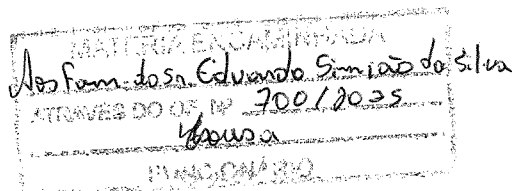 MATÉRIA ENCAMINHADA
Aos Fam. do Sr. Eduardo Simião da Silva
ATRAVÉS DO OF. Nº 700/2025
Sousa
FUNCIONÁRIO